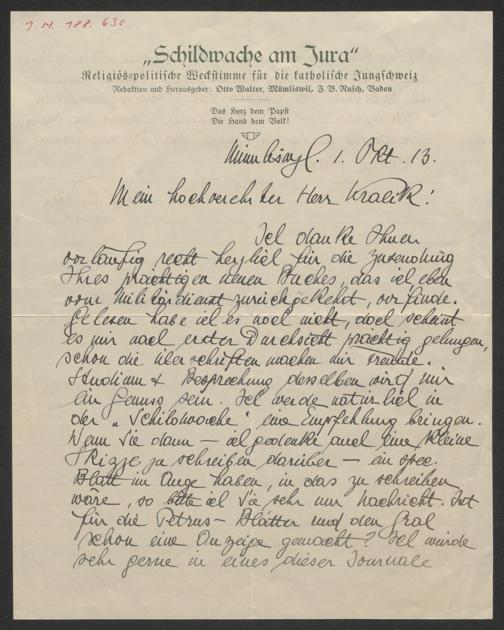 J. N. 188.630
„Schildwache am Jura“
Religiös-politische Weckstimme für die katholische Jungschweiz
Redaktion und Herausgeber: Otto Walter, Mümliswil, J. B. Rusch, Baden
Das Herz dem Papst
Die Hand dem Volk!
1. Okt. 13.
Mein hochverehrter Herr Kralik!
Ich danke Ihnen
vorläufig recht herzlich für die Zusendung
Ihres prächtigen neuen Buches, das ich eben
vom Militärdienst zurückgekehrt, vorfinde.
Gelesen habe ich es noch nicht, doch scheint
es mir nach erster Durchsicht prächtig gelungen,
schon die Überschriften machen mir Freude.
Studium & Besprechung desselben wird mir
ein Genuss sein. Ich werde natürlich in
der „Schildwache“ eine Empfehlung bringen.
Wenn Sie dann — ich gedenke auch eine kleine
Skizze zu schreiben darüber — ein spez.
Blatt im Auge haben, in das zu schreiben
wäre, so bitte ich Sie sehr um Nachricht. Ist
für die Petrus-Blätter und den Gral
schon eine Anzeige gemacht? Ich würde
sehr gerne in eines dieser Journale